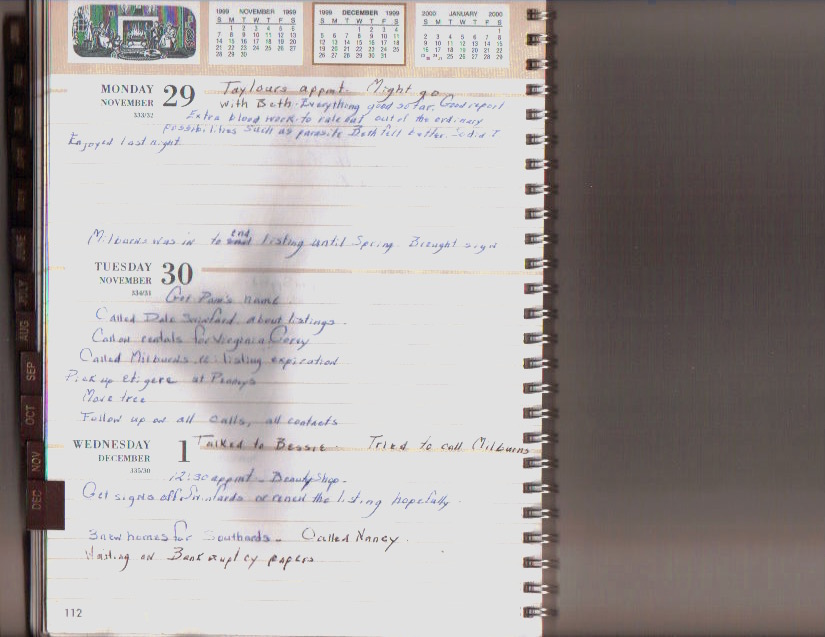 1999 NOVEMBER 1999
S M T W T F S
1 2 3 4 5 6
7 8 9 10 11 12 13
14 15 16 17 18 19 20
21 22 23 24 25 26 27
28 29 30
1999 DECEMBER 1999
S M T W T F S
1 2 3 4
5 6 7 8 9 10 11
12 13 14 15 16 17 18
19 20 21 22 23 24 25
26 27 28 29 30 31
2000 JANUARY 2000
S M T W T F S
1
2 3 4 5 6 7 8
9 10 11 12 13 14 15
16 17 18 19 20 21 22
25 26 27 28 29
MONDAY
NOVEMBER 29
333/32
Taylours appmt. Might go
with Beth. Everything good so far. Good report
Extra blood work to rule out out of the ordinary
possibilities such as parasite Beth felt better. So did I
Enjoyed last night
Milburns was in to end listing until Spring Brought sign
TUESDAY
NOVEMBER 30
334/31
Get Pam's name
Called Dale about listings.
Call on rentals for Virginia
Called Milburns re: listing expiration
Pick up etigere at Penneys
Move tree
Follow up on all calls, all contacts
WEDNESDAY
DECEMBER 1
335/30
Talked to Bessie. Tried to call Milburns
12:30 appmt - Beauty Shop.
Get signs off or renew the listing hopefully.
3 new homes for Southards - Called Nancy.
Waiting on Bankruptcy papers
JUNE
JULY
AUG
SEP
OCT
NOV
DEC
112